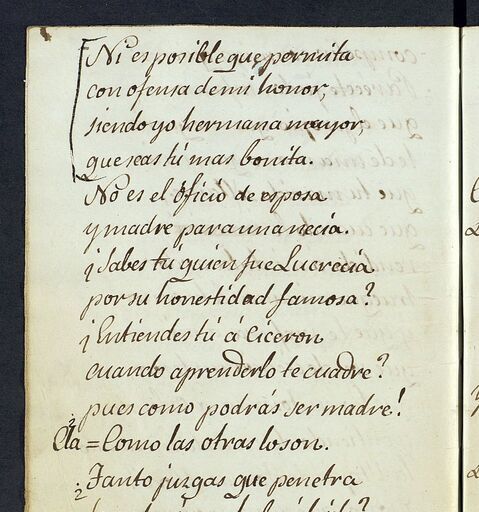 Ni es posible que permita
con ofensa de mi honor,
siendo yo hermana mayor,
que seas tú mas bonita.
No es el oficio de esposa
y madre para una necia.
¿Sabes tú quien fue Lucrecia
por su honestidad famosa?
¿Entiendes tú á Ciceron
cuando aprenderlo te cuadre?
¿pues como podrás ser madre!
Cla = Como las otras lo son.
¿Tanto juzgas que penetra